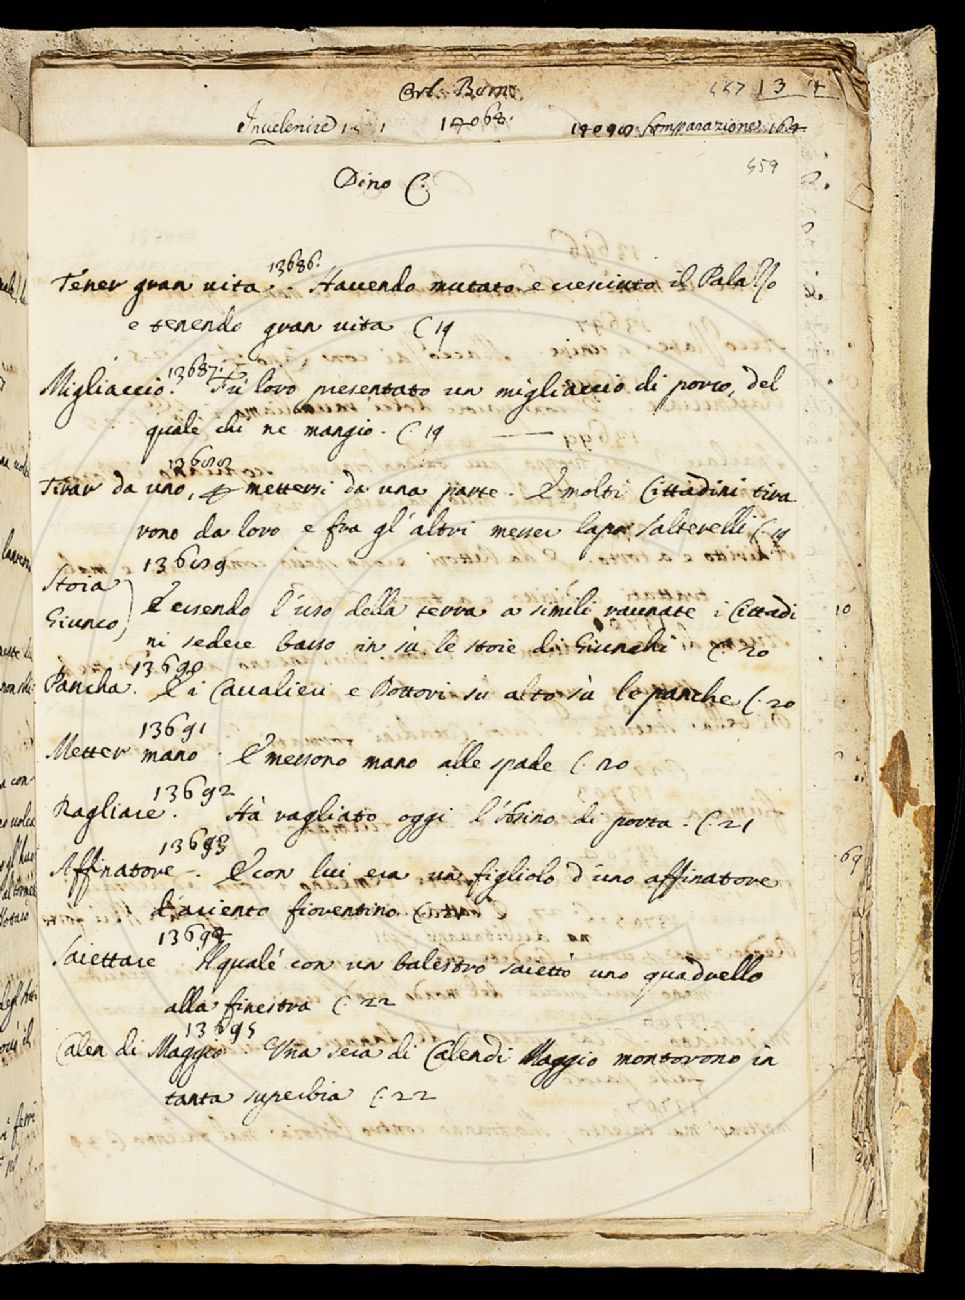 Orl. Bern.
457 13 4
Invelenire 1 1 14068. 14090 Comparazione 164
459
Dino C.
13686.
Tener gran vita. Havendo mutato e cresciuto il Palazzo
e tenendo gran vita C 19
13687.
Migliaccio. Fù loro presentato un migliaccio di porco, del
quale chi ne mangiò. C. 19
13688
Tirar da uno, mettersi da una parte. E molti Cittadini tira
rono da loro e fra gl'altri messer Lapo Salterelli C. 19
13689
Stoia
Giunco
E essendo l'uso della terra a simili raunate i Cittadi
ni sedere basso in sù le stoie di Giunchi C. 20
13690
Pancha. E i Cavalieri e Dottori su alto sù le panche C. 20
13691
Metter mano. E messono mano alle spade C. 20
13692
Ragliare. Hà ragliato oggi l'Asino di porta. C. 21
13693
Affinatore. E con lui era un figliolo d'uno affinatore
d'ariento fiorentino C. 21
13694
Saiettare. Il quale con un balestro saiettò uno quadrello
alla finestra C. 22
13695
Calen di Maggio. Una sera di Calendi Maggio montorono in
tanta superbia C. 22
10
69